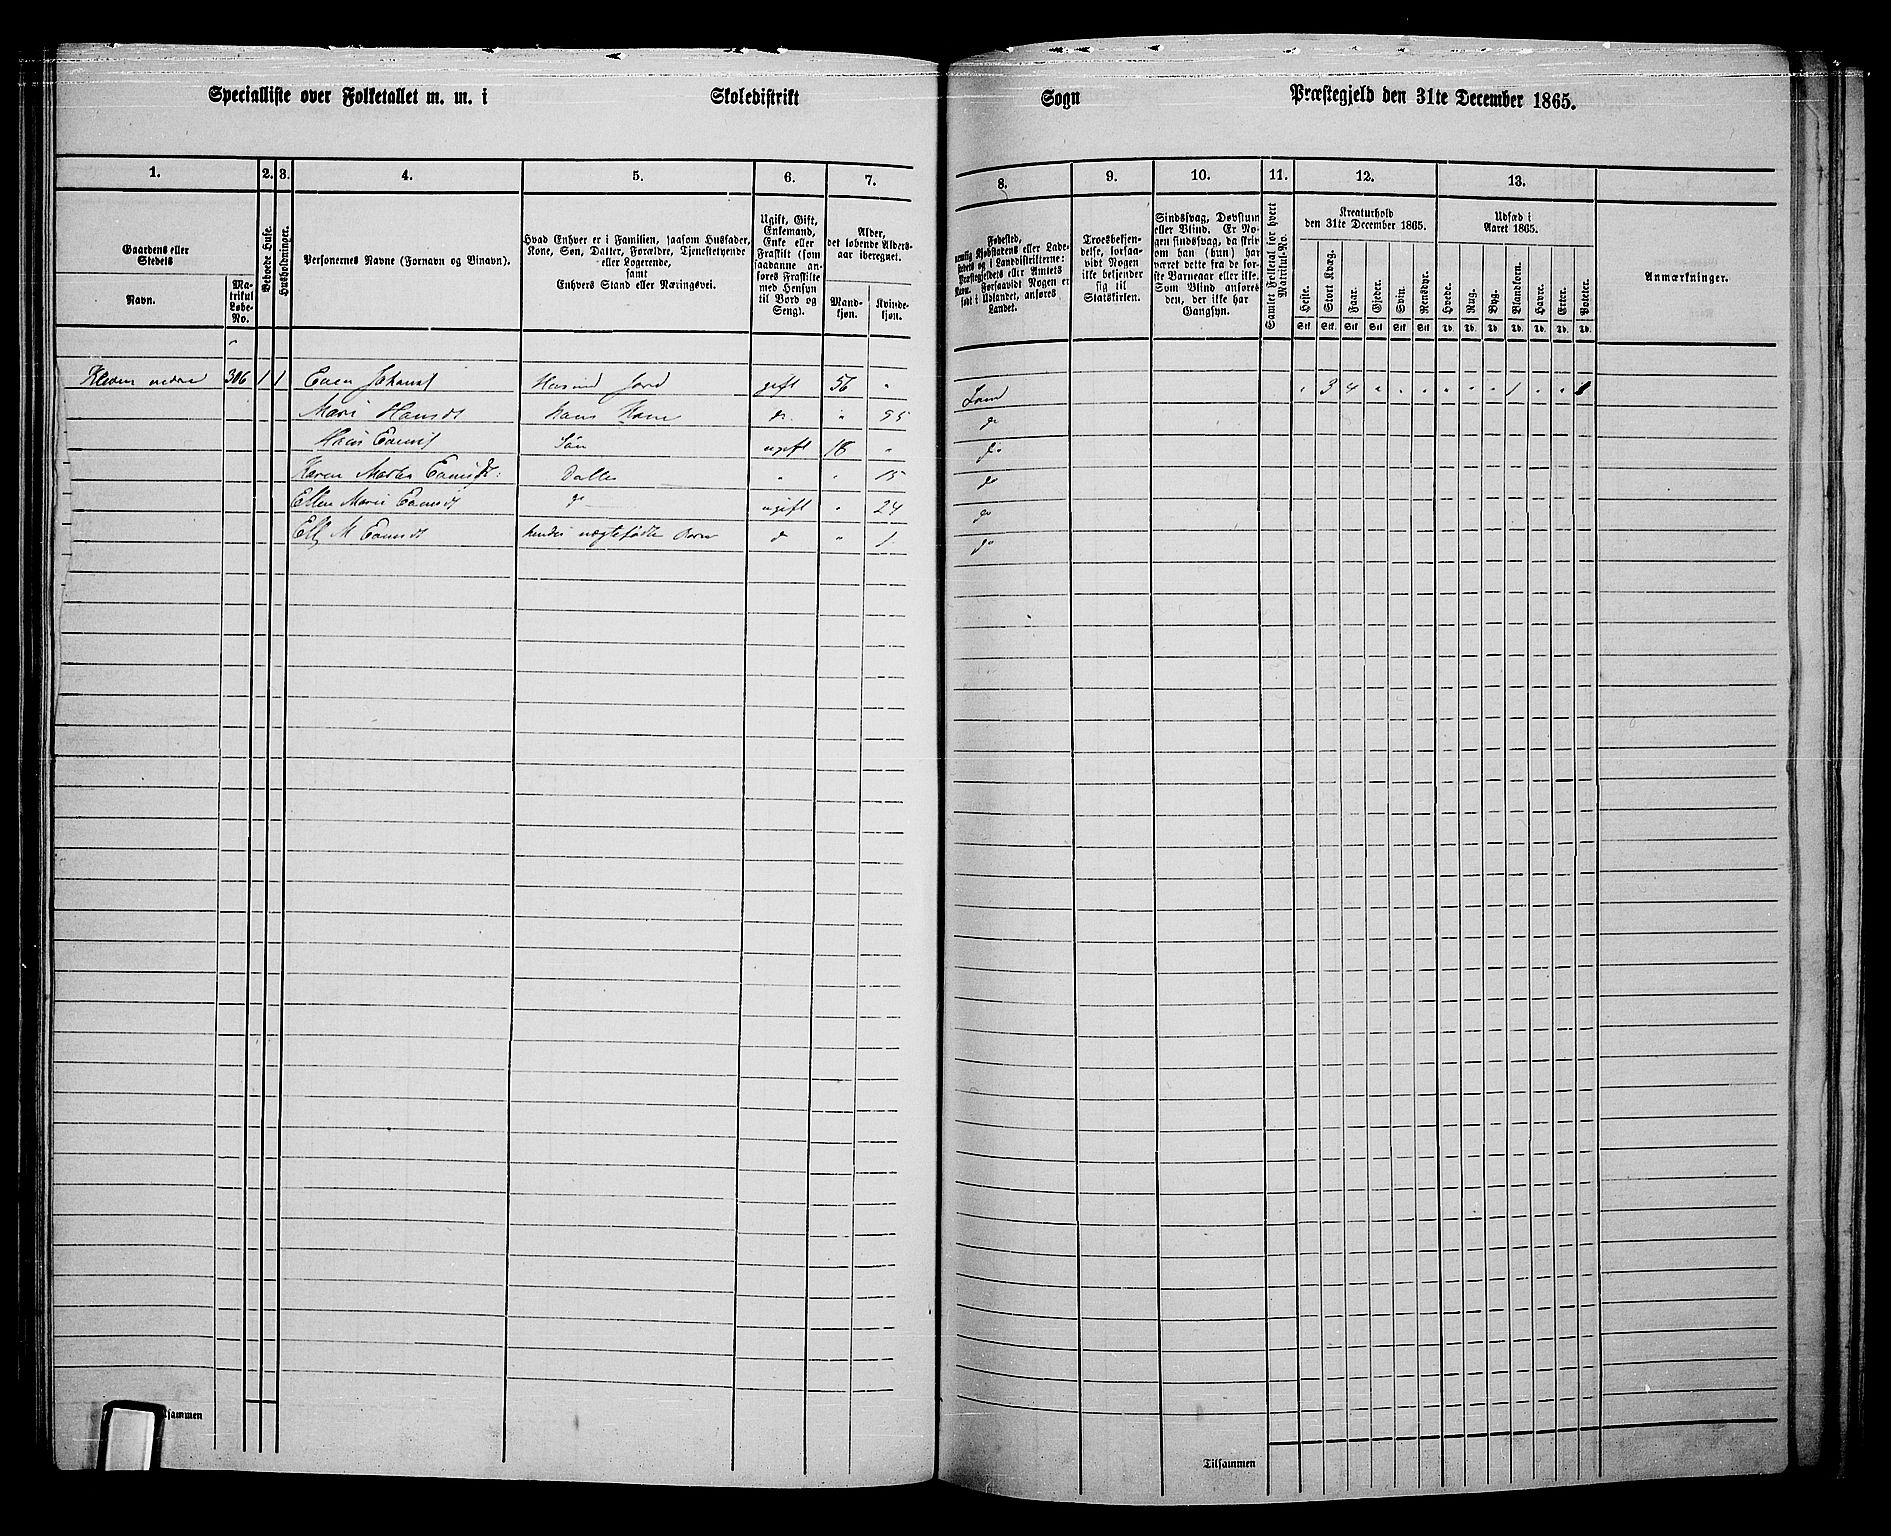 Specialliste over Folketallet m. m. i Skoledistrikt Sogn Præstegjeld den 31te December 1865.
1. 2. 3. 4. 5. 6. 7. 8. 9. 10. 11. 12. 13.
Gaardens eller Stedets
Navn.
Ma-
trikul
Løbe-
No.
Beboede Huse.
Husholdninger.
Personernes Navne (Fornavn og Binavn).
Hvad Enhver er i Familien, saasom Husfader,
Kone, Søn, Datter, Forældre, Tjenestetyende
eller Logerende,
samt
Enhvers Stand eller Næringsvei.
Ugift, Gift,
Enkemand,
Enke eller
Fraskilt (som
saadanne an-
føres Fraskilte
med Hensyn
til Bord og
Seng).
Alder,
det løbende Alders-
aar iberegnet.
Mand-
kjøn.
Kvinde-
kjøn.
Fødested,
nemlig Kjøbstadens eller Lade-
stedets og i Landdistrikterne:
Præstegjeldets eller Amtets
Navn. Forsaavidt Nogen er
født i Udlandet, anføres
Landet.
Troesbekjen-
delse, forsaa-
vidt Nogen
ikke bekjender
sig til
Statskirken.
Sindssvag, Døvstum
eller Blind. Er No-
gen sindssvag, da skriv
om han (hun) har
været dette fra de før-
ste Barneaar eller ikke.
Som Blind anføres
den, der ikke har
Gangsyn.
Samlet Folketal for hvert
Matrikul-No.
Kreaturhold
den 31te December 1865.
Heste. Stort Kvæg. Faar. Gjeder. Svin. Rensdyr.
Stk. Stk. Stk. Stk. Stk. Stk.
Udsæd i
Aaret 1865.
Hvede. Rug. Byg. Blandkorn. Havre. Erter. Poteter.
Td. Td. Td. Td. Td. Td. Td.
Anmærkninger.
306 1 1 Even gift 56 " " 3 4 " " " " " " 1 " "
Mari Hansdt hans Kone do " 55 do
Hans Evens Søn ugift 18 " do
Karen Evensdt: Datter " " 15 do
Ellen Marie Evensdt do ugift " 24 do
M Evensdt hendes uægtefødte Barn do " 1 do
Tilsammen